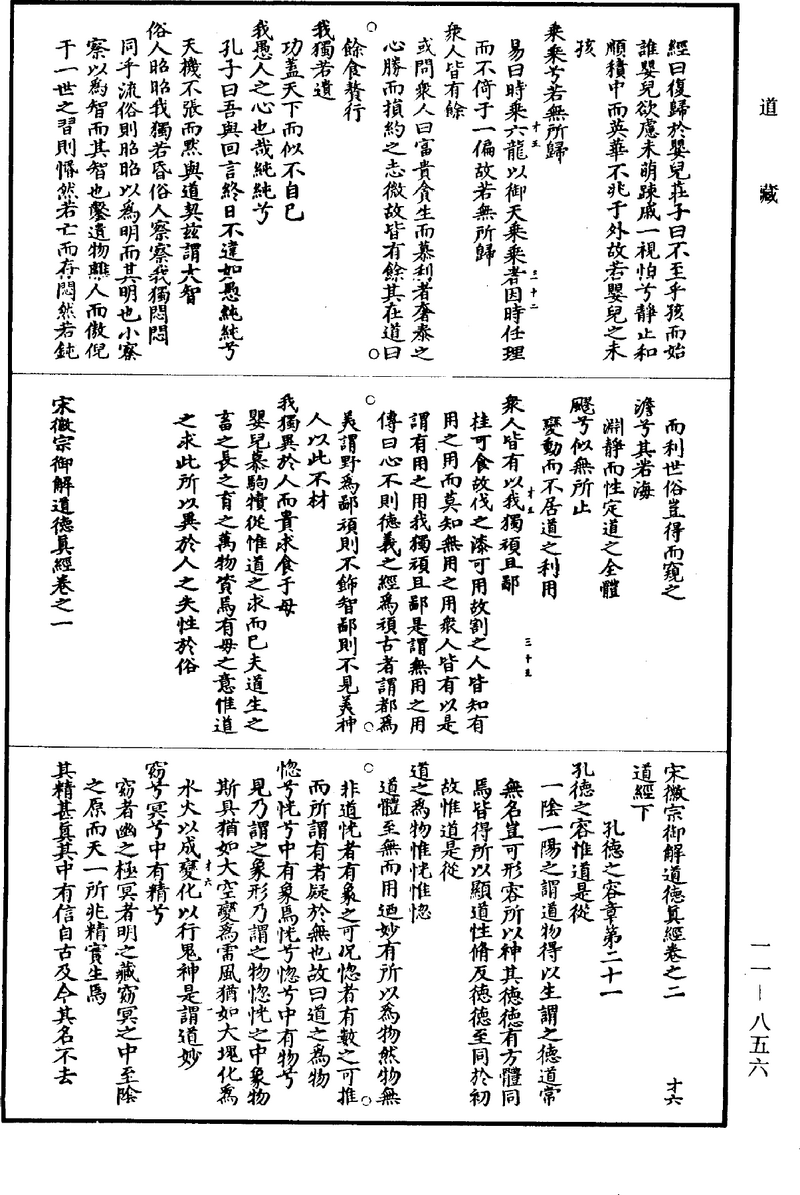 道藏
經曰復歸於嬰兒莊子曰不至乎孩而始
誰嬰兒欲慮未萌踈戚一視怕兮靜止和
順積中而英華不兆于外故若嬰兒之未
孩
乘乘兮若無所歸
易曰時乘六龍以御天乘乘者因時任理
而不倚于一偏故若無所歸
衆人皆有餘
或問衆人曰富貴貪生而慕利者奢泰之
心勝而損約之志微故皆有餘其在道曰
餘食贅行
我獨若遺
功蓋天下而似不自已
我愚人之心也哉純純兮
孔子曰吾與回言終日不違如愚純純兮
天機不張而默與道契兹謂大智
俗人昭昭我獨若昏俗人察察我獨悶悶
同乎流俗則昭昭以爲明而其明也小察
察以爲智而其智也鑿遺物離人而傲倪
于一世之習則惛然若亡而存悶然若鈍
而利世俗豈得而窺之
澹兮其若海
淵靜而性定道之全體
飂兮似無所止
變動而不居道之利用
衆人皆有以我獨頑且鄙
桂可食故伐之漆可用故割之人皆知有
用之用而莫知無用之用衆人皆有以是
謂有用之用我獨頑且鄙是謂無用之用
傳曰心不則德義之經爲頑古者謂都爲
美謂野爲鄙頑則不飾智鄙則不見美神
人以此不材
我獨異於人而貴求食于母
嬰兒慕駒犢從惟道之求而已夫道生之
畜之長之育之萬物資焉有母之意惟道
之求此所以異於人之失性於俗
宋徽宗御解道德真經卷之一
宋徽宗御解道德真經卷之二 才六
道經下
孔德之容章第二十一
孔德之容惟道是從
一陰一陽之謂道物得以生謂之德道常
無名豈可形容所以神其德德有方體同
焉皆得所以顯道性脩反德德至同於初
故惟道是從
道之爲物惟恍惟惚
道體至無而用迺妙有所以爲物然物無
非道恍者有象之可况惚者有數之可推
而所謂有者疑於無也故曰道之爲物
惚兮恍兮中有象焉恍兮惚兮中有物兮
見乃謂之象形乃謂之物惚恍之中象物
斯具猶如大空變爲雷風猶如大塊化爲
水火以成變化以行鬼神是謂道妙
窈兮冥兮中有精兮
窈者幽之極冥者明之藏窈冥之中至陰
之原而天一所兆精實生焉
其精甚真其中有信自古及今其名不去
一一—八五六